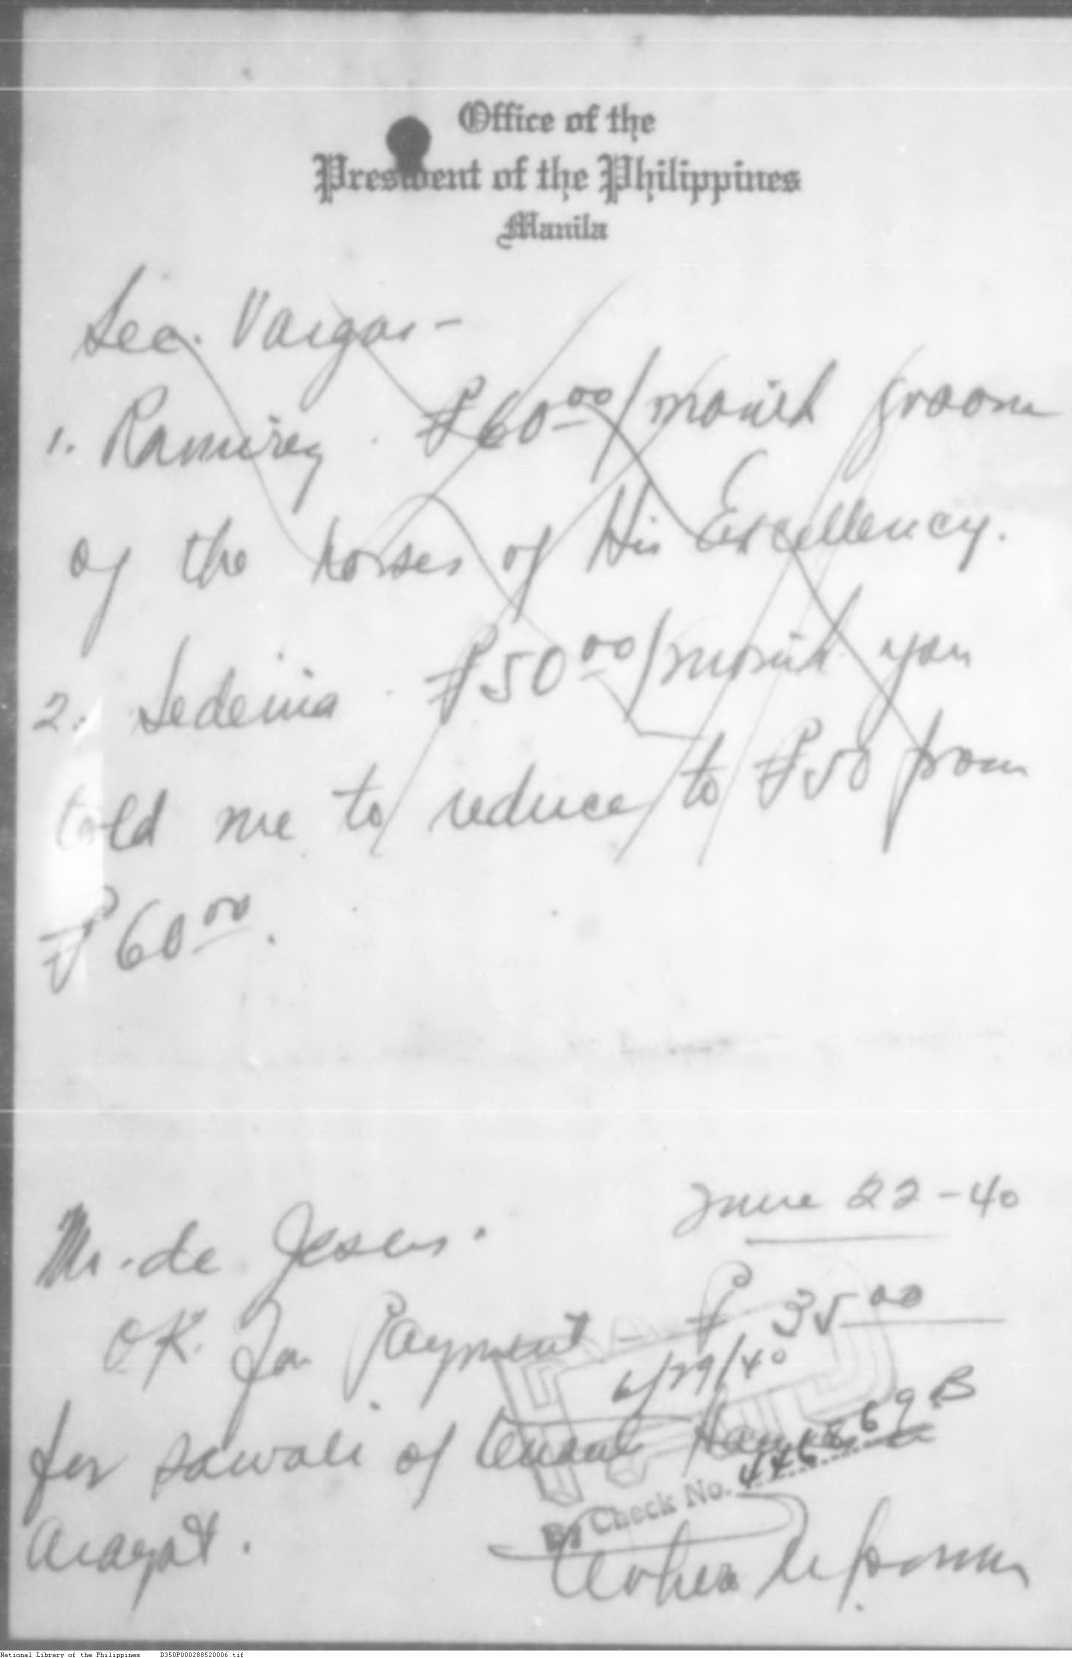 Office of the
President of the Philippines
Manila
Sec. Vargas -
1. Ramirez . ₱60.00/month groom
of the horses of His Excellency.
2. Ledesma . ₱50.00/month you
told me to reduce to ₱50 from
₱60.00.
June 22-40
Mr. de Jesus.
OK. for Payment - ₱ 35.00
6/29/40
for sawali of tenant
Arayat.
By Check No. 446869 B